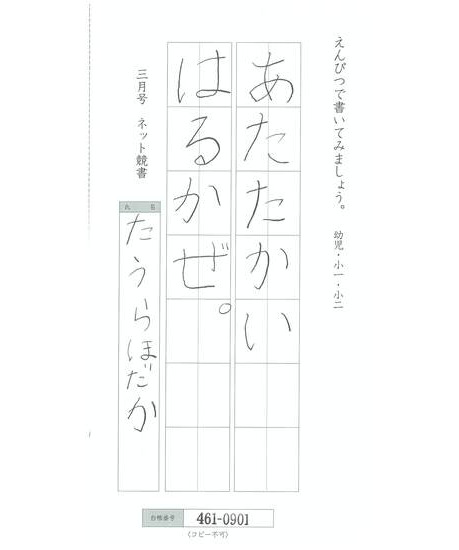 えんぴつで書いてみましょう。 幼児・小一・小二
あたたかい
はるかぜ。
三月号 ネット競書
氏名
たうらほだか
台帳番号 461-0901
(コピー不可)